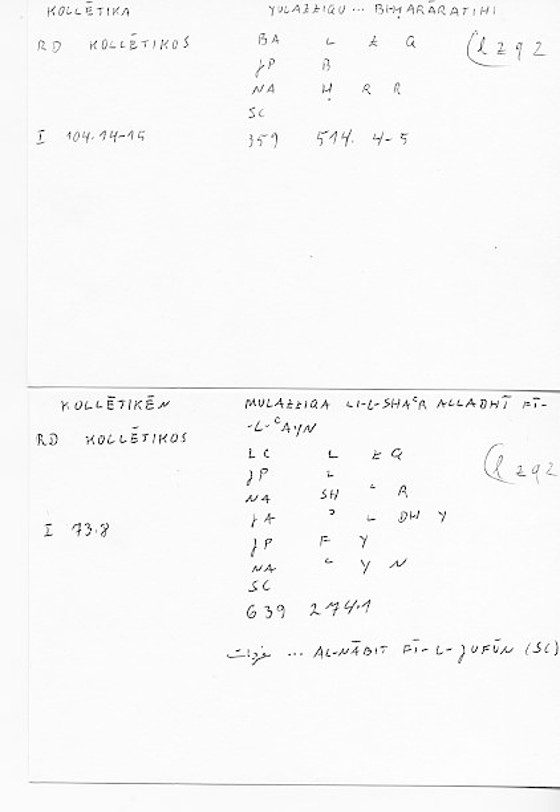 KOLLĒTIKA YULAZZIQU ... BI-ḤARĀRATIHI
RD KOLLĒTIKOS BA L Z Q (lzq2
JP B
NA Ḥ R R
SC
I 104.14-15 359 514. 4-5
KOLLĒTIKĒN MULAZZIQA LI-L-SHAʿR ALLADHĪ FĪ-
-L-ʿAYN
RD KOLLĒTIKOS LC L ZQ (lzq2
JP L
NA SH ʿ R
I 73.8 JA ʾ L DH Y
JP F Y
NA ʿ Y N
SC
639 274.1
... AL-NĀBIT FĪ-L-JUFŪN (SC)